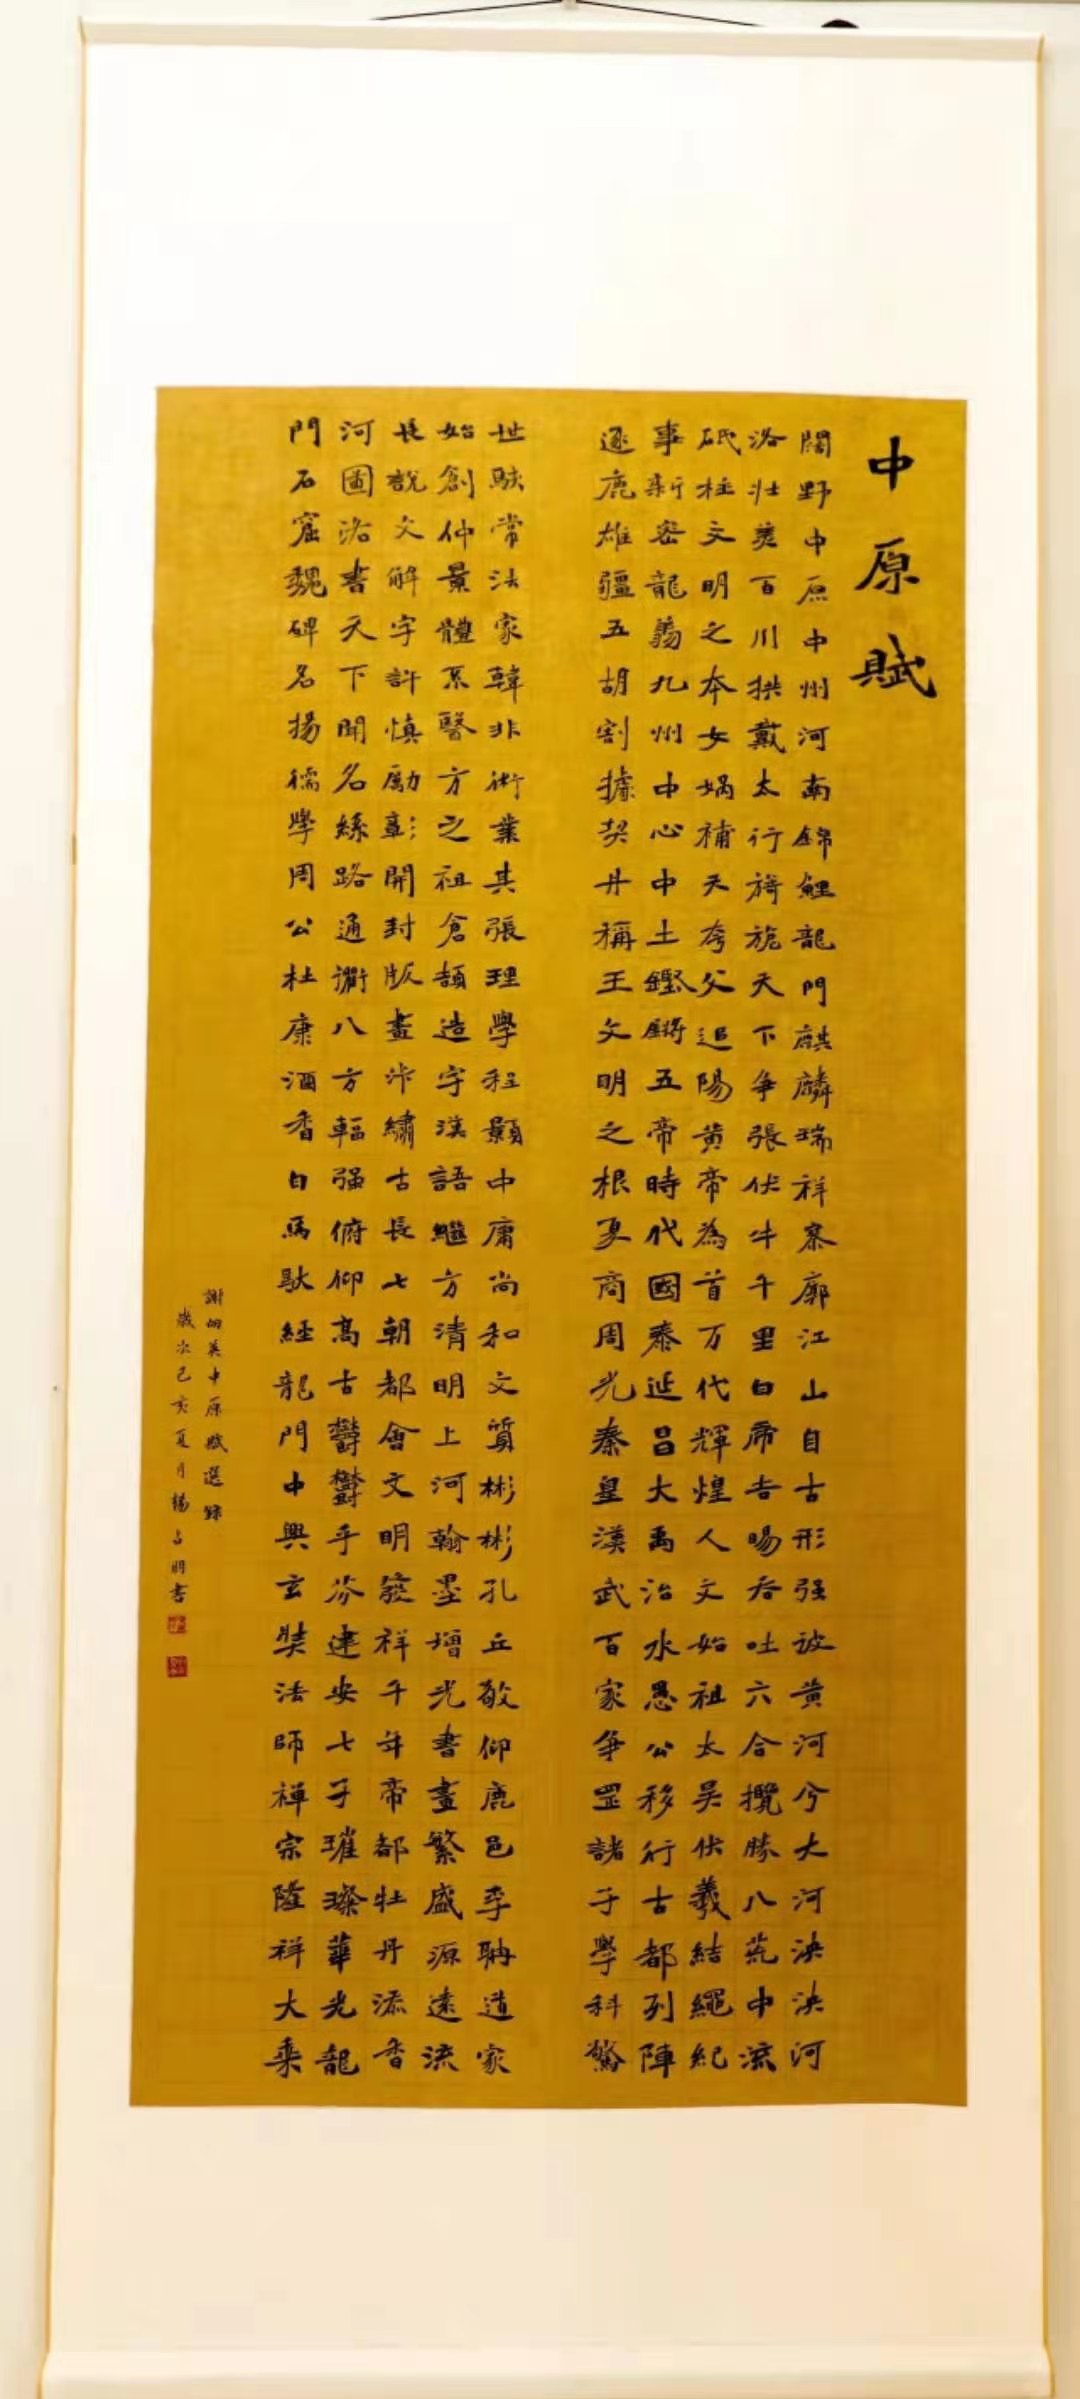 中原賦
闊野中原中州河南錦鯉龍門麒麟瑞祥寥廓江山自古形强波黄河兮大河泱泱河
洛壮美百川拱戴太行旖旎天下争張伏牛千里白帝吉暘吞吐六合攬勝八荒中流
砥柱文明之本女媧補天夸父追陽黄帝為首万代輝煌人文始祖太昊伏羲結繩紀
事新密龍觴九州中心中土鏗鏘五帝時代國泰延昌大禹治水愚公移行古都列陣
逐鹿雄疆五胡割據契丹稱王文明之根夏商周光秦皇漢武百家争罡諸子學科驚
世賦常法家韓非術業其張理學程顥中庸尚和文質彬彬孔丘敬仰鹿邑李聃道家
始創仲景體系醫方之祖倉頡造字漢語繼方清明上河翰墨增光書畫繁盛源遠流
長說文解字許慎勵彰開封版畫汴繡古長七朝都會文明發祥千年帝都牡丹添香
河圖洛書天下聞名絲路通衢八方輻强俯仰高古鬱鬱乎芬建安七子璀璨華光龍
門石窟魏碑名揚儒學周公杜康酒香白馬馱經龍門中興玄奘法師禅宗隆祥大乘
謝炳英中原賦選錄
歲次己亥夏月楊占明書